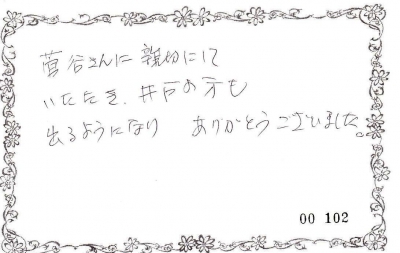 菅谷さんに親切にして
いただき、井戸の方も
出るようになり ありがとうございました。
00 102